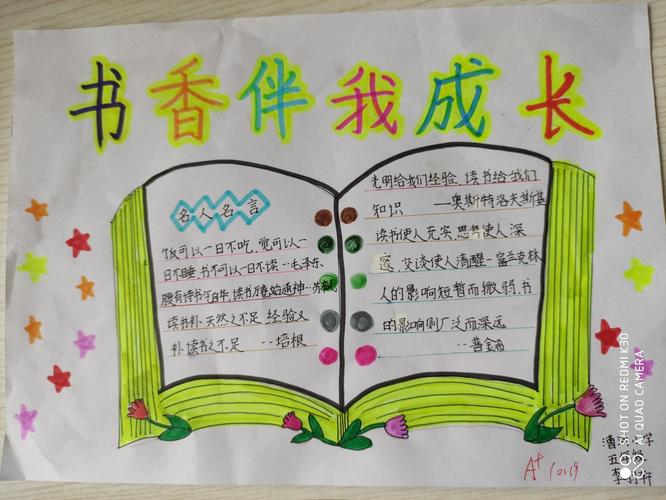 书香伴我成长
名人名言
饭可以一日不吃,觉可以一
日不睡,书不可以一日不读--毛泽东
腹有诗书气自华,读书万卷始通神--苏轼
读书补天然之不足,经验又
补读书之不足 --培根
光明给我们经验,读书给我们
知识 —奥斯特洛夫斯基
读书使人充实,思考使人深
邃,交谈使人清醒-富兰克林
人的影响短暂而微弱,书
的影响则广泛而深远
--普金
A+ 10.19
小学
五年级
李
SHOT ON REDMI K30
AI QUAD CAMERA